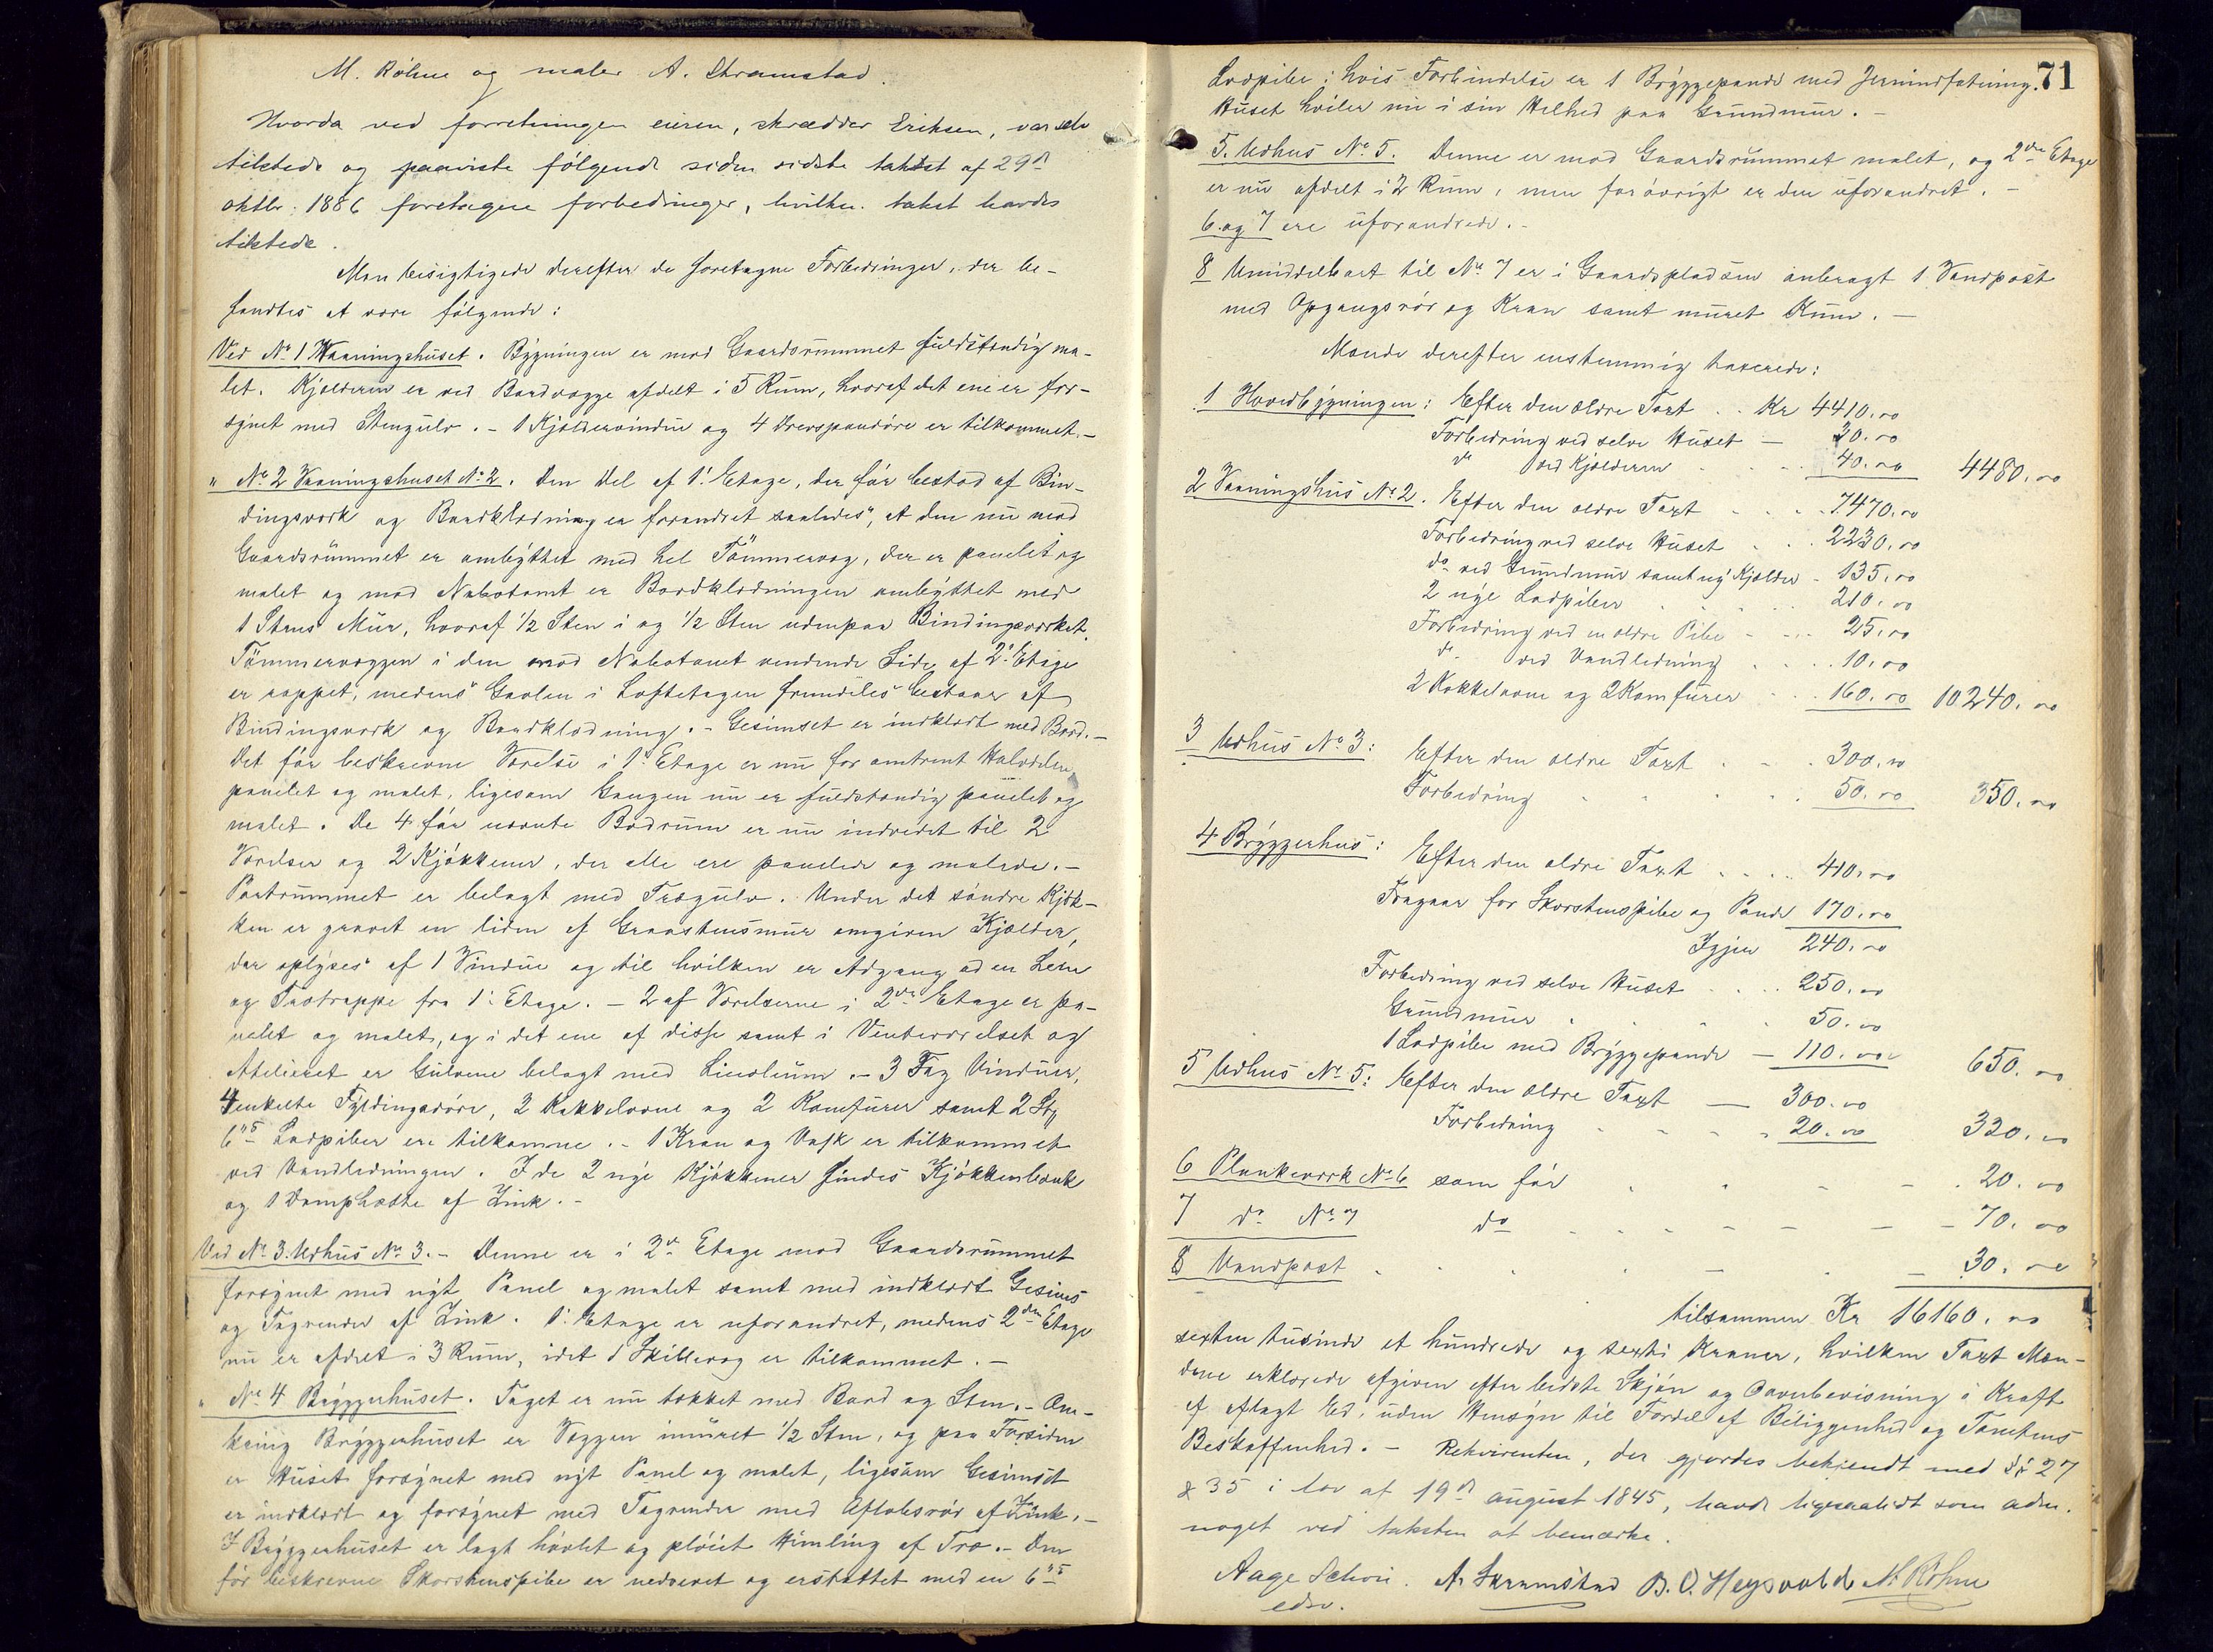 M. Röhne og maler A. Skramstad.
Hvorda ved forretningen eieren, skrædder Eriksen, var selv
tilstede og paaviste følgende siden sidste takst af 29de
oktbr. 1886 foretagne forbedringer, hvilken takst havdes
tilstede.
Man besigtigede derefter de foretagne Forbedringer, der be-
fandtes at være følgende:
Ved No 1 Vaaningshuset. Bygningen er mod Gaardsrummet fuldstændig ma-
let. Kjælderen er ved Bordvægge afdelt i 5 Rum, hvoraf det ene er for-
synet med Stengulv. - 1 Kjældervindue og 4 Drevspandøre er tilkommet. -
" No 2 Vaaningshuset No 2. Den Del af 1. Etage, der før bestod af Bin-
dingsværk og Bordklædning er forandret saaledes, at den nu mod
Gaardsrummet er ombyttet med hel Tømmervæg, der er panelet og
malet og mod Nabotomt er Bordklædningen ombyttet med
1 Stens Mur, hvoraf 1/2 Sten i og 1/2 Sten udenpaa Bindingsværket.
Tømmervæggen i den mod Nabotomt vendende Side af 2. Etage
er rappet, medens Gavlen i Loftetagen fremdeles bestaaer af
Bindingsværk og Bordklædning. - Gesimset er indklædt med Bord. -
Det før beskrevne Værelse i 1. Etage er nu for omtrent Halvdelen
panelet og malet, ligesom Gangen nu er fuldstændig panelet og
malet. De 4 før nævnte Bodrum er nu indredet til 2
Værelser og 2 Kjøkkener, der alle ere panelede og malede. -
Portrummet er belagt med Trægulv. Under det søndre Kjøk-
ken er gravet en liden af Graastensmur omgiven Kjælder,
der oplyses af 1 Vindue og til hvilken er Adgang ad en Lem
og Trætrappe fra 1. Etage. - 2 af Værelserne i 2den Etage er pa-
nelet og malet, og i det ene af disse samt i Venteværelset og
Atelieret er Gulvene belagt med Linolium. - 3 Fag Vinduer,
4 enkelte Fyldingsdøre, 2 Kakkelovne og 2 Komfurer samt 2 Stk
6"s Lodpiber ere tilkomne. - 1 Kran og Vask er tilkommet
ved Vandledningen. I de 2 nye Kjøkkener findes Kjøkkenbænk
og 1 Damphætte af Zink. -
Ved No 3. Udhus No 3. - Denne er i 2de Etage mod Gaardsrummet
forsynet med nyt Panel og malet samt med indklædt Gesims
og Tagrender af Zink. 1. Etage er uforandret, medens 2den Etage
nu er afdelt i 3 Rum, idet 1 Skillevæg er tilkommet. -
" No 4 Bryggerhuset. Taget er nu tækket med Bord og Sten. - Om-
kring Bryggerhuset er Væggen inmuret 1/2 Sten, og paa Forsiden
er Huset forsynet med nyt Panel og malet, ligesom Gesimset
er indklædt og forsynet med Tagrender med Afløbsrør af Zink. -
I Bryggerhuset er lagt høvlet og pløiet Himling af Træ. - Den
før beskrevne Skorstenspibe er nedrevet og erstattet med en 6"s
71
Lodpibe i hvis Forbindelse er 1 Bryggepande med Jernindfatning.
Huset hviler nu i sin Helhed paa Grundmur. -
5. Udhus No 5. Denne er mod Gaardsrummet malet, og 2den Etage
er nu afdelt i 2 Rum, men forøvrigt er den uforandret. -
6. og 7 ere uforandrede. -
8 Umiddelbart til No 7 er i Gaardspladsen anbragt 1 Vandpost
med Opgangsrør og Kran samt muret Kum. -
Mænde derefter enstemmig taxerede:
1 Hovedbygningen: Efter den ældre Taxt . . Kr 4410.00
Forbedring ved selve Huset - 30.00
do ved Kjælderen . . . 40.00 4480.00
2 Vaaningshus No 2. Efter den ældre Taxt - . . 7470.00
Forbedring ved selve Huset . . . 2230.00
do ved Grundmur samt ny Kjælder - 135.00
2 nye Lodpiber . . . 210.00
Forbedring ved en ældre Pibe - . . 25.00
do ved Vandledning . . . 10.00
2 Kakkelovne og 2 Komfurer . . . 160.00 10240.00
3 Udhus No 3: Efter den ældre Taxt . - . 300.00
Forbedring . . . . 50.00 350.00
4 Bryggerhus: Efter den ældre Taxt . . . . 410.00
Fragaar for Skorstenspibe og Pande 170.00
Igjen 240.00
Forbedring ved selve Huset . . . 250.00
Grundmur . . . . 50.00
1 Lodpibe med Bryggepande - 110.00 650.00
5 Udhus No 5: Efter den ældre Taxt - 300.00
Forbedring - - - - 20.00 320.00
6 Plankeværk No 6 som før . . - - . 20.00
7 do No 7 do - - - - - - 70.00
8 Vandpost . . . - . - 30.00
tilsammen Kr 16160.00
sexten tusinde et hundrede og sexti Kroner, hvilken Taxt Mæn-
dene erklærede afgiven efter bedste Skjøn og Overbevisning i Kraft
af aflagt Ed, uden Hensyn til Fordel af Beliggenhed og Tomtens
Beskaffenhed. - Rekvirenten, der gjordes bekjendt med §§ 27
& 35 i lov af 19de august 1845, havde ligesaalidt som adm.
noget ved taksten at bemærke.
Aage Schou. A. Skramstad B. O. Heysvolde M. Röhne
edsv.